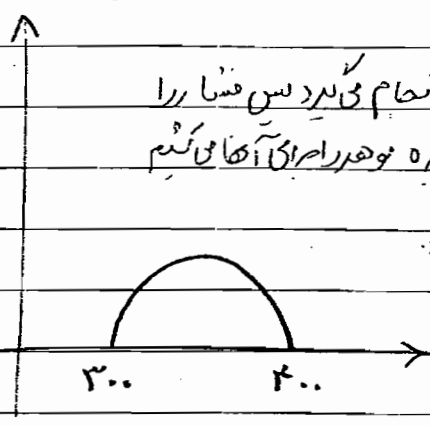 انجام می‌گیرد پس فشار را
ه موهر را برای آنها می‌کشیم
۳۰۰ ۴۰۰